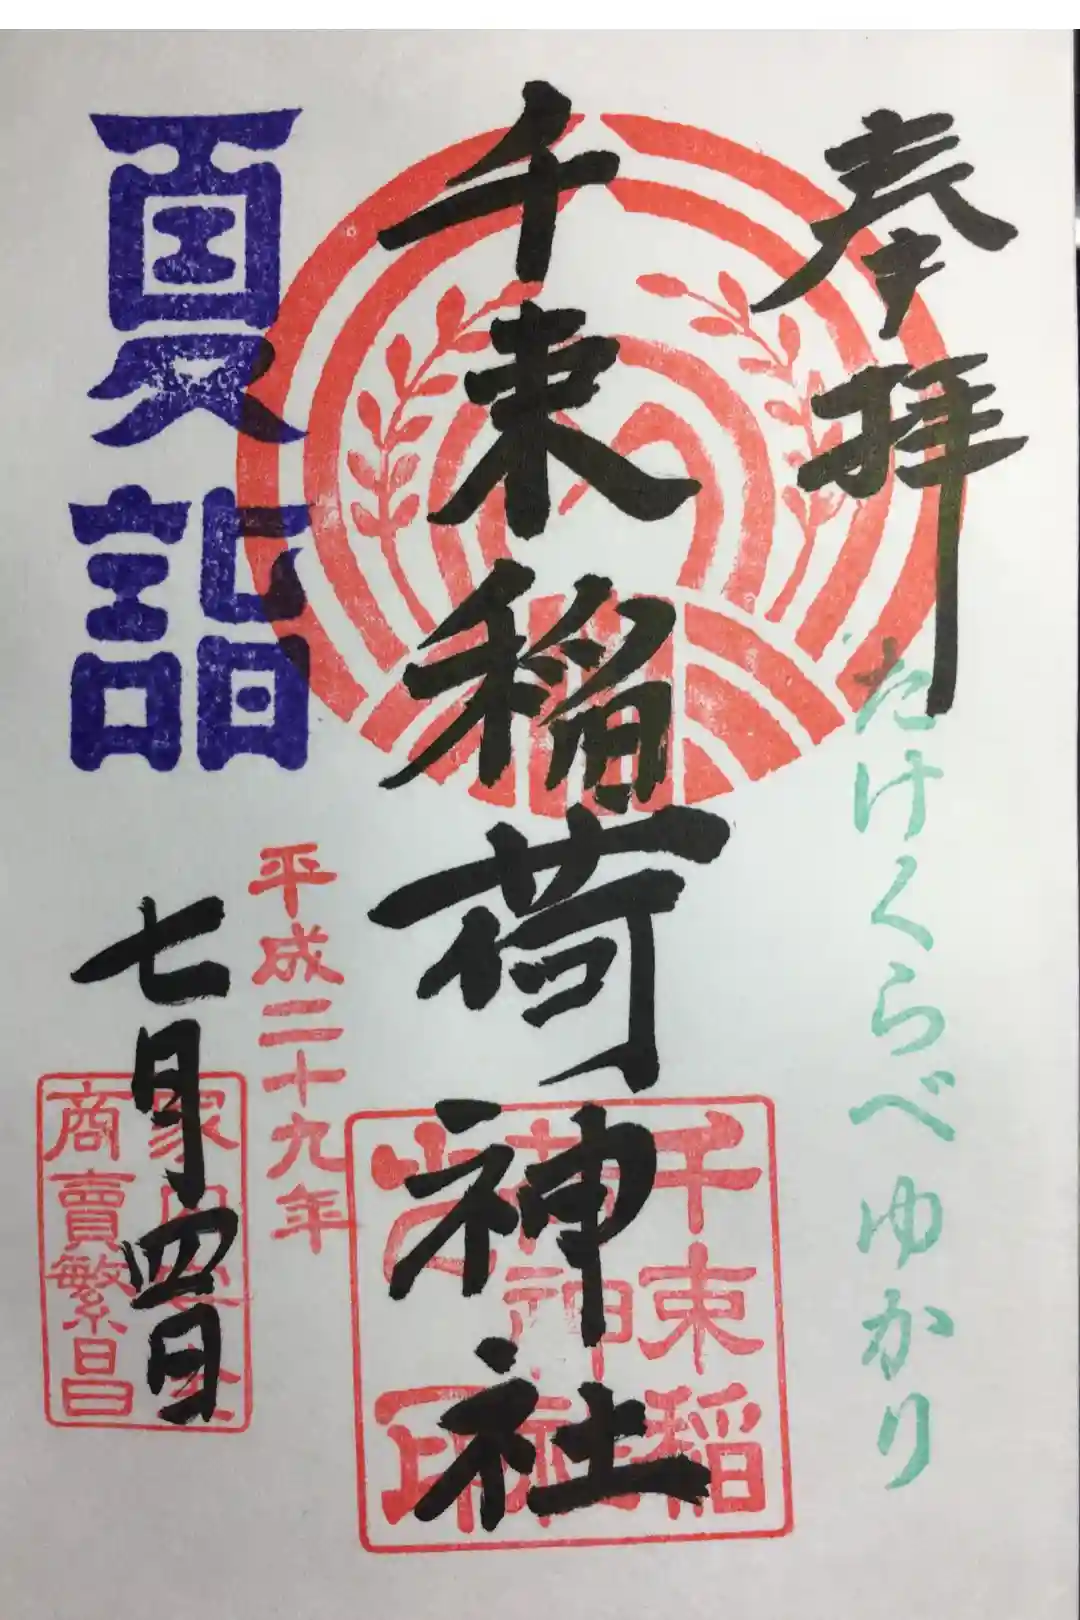 奉拝
たけくらべゆかり
千束稲荷神社
千束稲
荷神社
之印
平成二十九年
七月四日
夏詣
家内安全
商賣繁昌